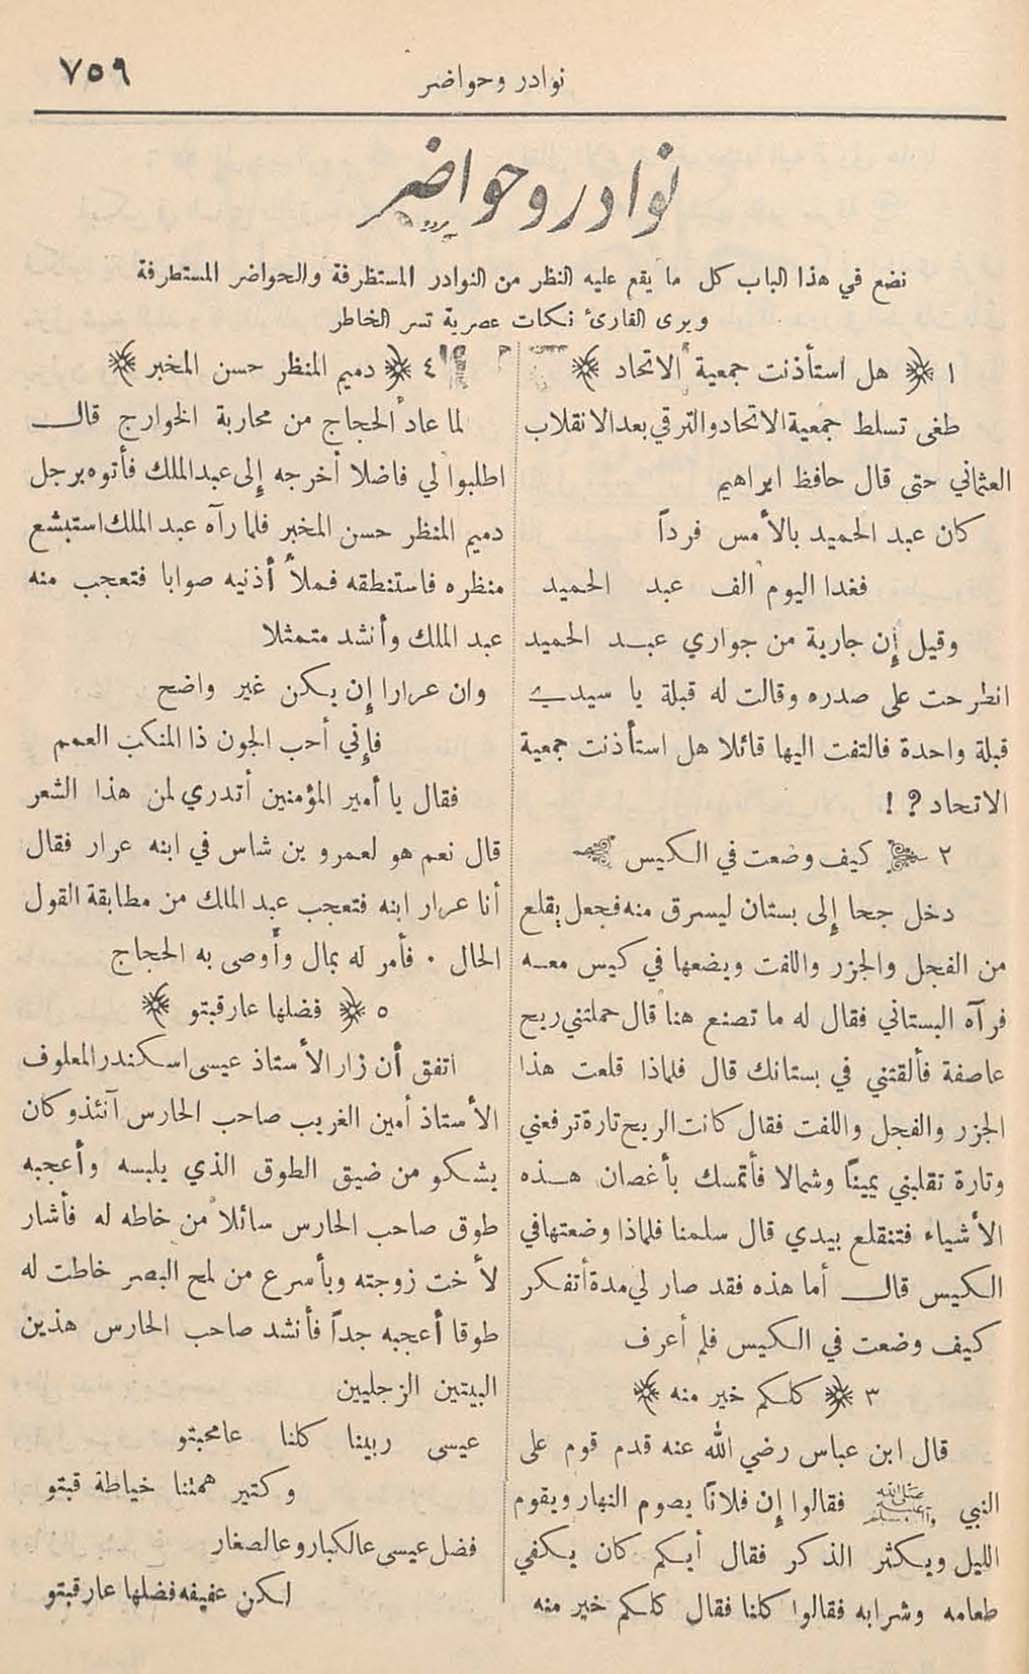 نوادر وحواضر
٧٥٩
نوادر وحواضر
نضع في هذا الباب كل ما يقع عليه النظر من النوادر المستظرفة والحواضر المستطرفة
ويرى القارئ نكات عصرية تسر الخاطر
١ ﴿ هل استأذنت جمعية الاتحاد ﴾
طغى تسلط جمعية الاتحاد والترقي بعد الانقلاب
العثماني حتى قال حافظ ابراهيم
كان عبد الحميد بالأمس فرداً
فغدا اليوم الف عبد الحميد
وقيل إن جارية من جواري عبد الحميد
انطرحت على صدره وقالت له قبلة يا سيدي
قبلة واحدة فالتفت اليها قائلا هل استأذنت جمعية
الاتحاد ? !
٢ كيف وضعت في الكيس
دخل جحا إلى بستان ليسرق منه فجعل يقلع
من الفجل والجزر واللفت ويضعها في كيس معه
فرآه البستاني فقال له ما تصنع هنا قال حملتني ريح
عاصفة فألقتني في بستانك قال فلماذا قلعت هذا
الجزر والفجل واللفت فقال كانت الريح تارة ترفعني
وتارة تقلبني يمينًا وشمالا فأتمسك بأغصان هذه
الأشياء فتنقلع بيدي قال سلمنا فلماذا وضعتها في
الكيس قال أما هذه فقد صار لي مدة أتفكر
كيف وضعت في الكيس فلم أعرف
٣ ﴿ كلكم خير منه ﴾
قال ابن عباس رضي الله عنه قدم قوم على
النبي صلى الله عليه وآله وسلم فقالوا إن فلانًا يصوم النهار ويقوم
الليل ويكثر الذكر فقال أيكم كان يكفي
طعامه وشرابه فقالوا كلنا فقال كلكم خير منه
٤ ﴿ دميم المنظر حسن المخبر ﴾
لما عاد الحجاج من محاربة الخوارج قال
اطلبوا لي فاضلا أخرجه إلى عبد الملك فأتوه برجل
دميم المنظر حسن المخبر فلما رآه عبد الملك استبشع
منظره فاستنطقه فملأ أذنيه صوابا فتعجب منه
عبد الملك وأنشد متمثلا
وان عرارا إن يكن غير واضح
فإني أحب الجون ذا المنكب العمم
فقال يا أمير المؤمنين أتدري لمن هذا الشعر
قال نعم هو لعمرو بن شاس في ابنه عرار فقال
أنا عرار ابنه فتعجب عبد الملك من مطابقة القول
الحال . فأمر له بمال وأوصى به الحجاج
٥ ﴿ فضلها عارقبتو ﴾
اتفق أن زار الأستاذ عيسى اسكندر المعلوف
الأستاذ أمين الغريب صاحب الحارس آنئذ وكان
يشكو من ضيق الطوق الذي يلبسه وأعجبه
طوق صاحب الحارس سائلا من خاطه له فأشار
لأخت زوجته وبأسرع من لمح البصر خاطت له
طوقا أعجبه جداً فأنشد صاحب الحارس هذين
البيتين الزجليين
عيسى ربينا كلنا عامحبتو
وكتير همتنا خياطة قبتو
فضل عيسى عالكبار وعالصغار
لكن عفيفه فضلها عارقبتو